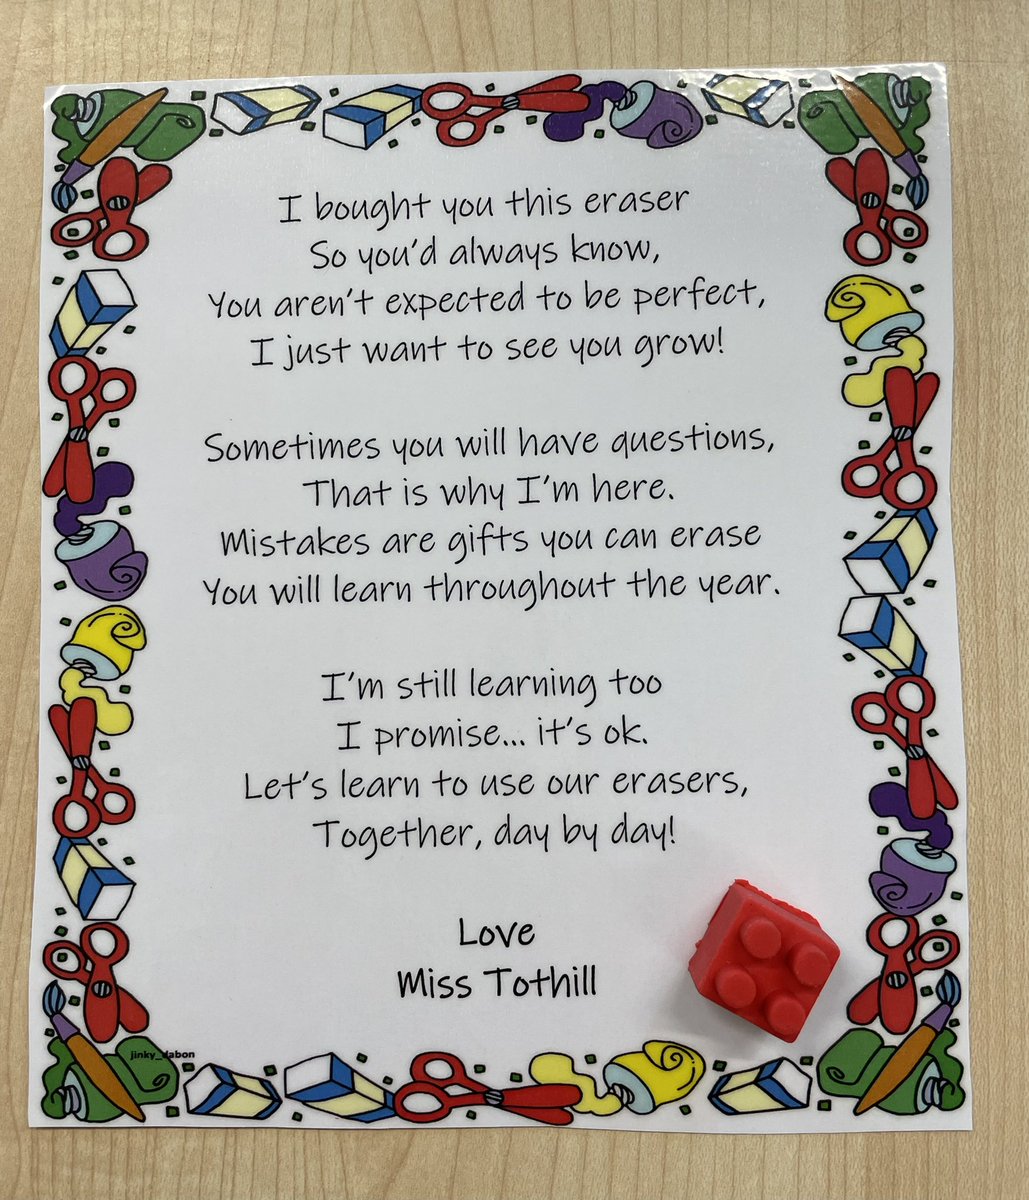 I bought you this eraser
So you'd always know,
You aren't expected to be perfect,
I just want to see you grow!
Sometimes you will have questions,
That is why I'm here.
Mistakes are gifts you can erase
You will learn throughout the year.
I'm still learning too
I promise... it's ok.
Let's learn to use our erasers,
Together, day by day!
Love
Miss Tothill
jinky_dabon